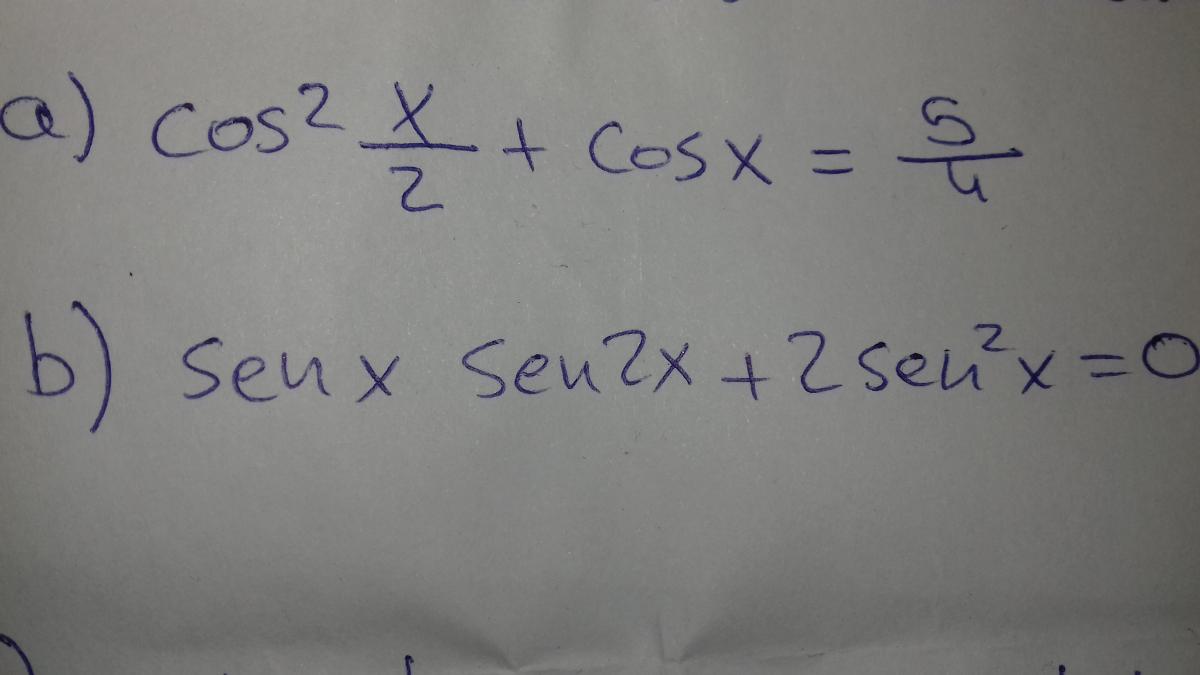 a) cos² x/2 + cos x = 5/4
b) sen x sen 2x + 2 sen² x = 0